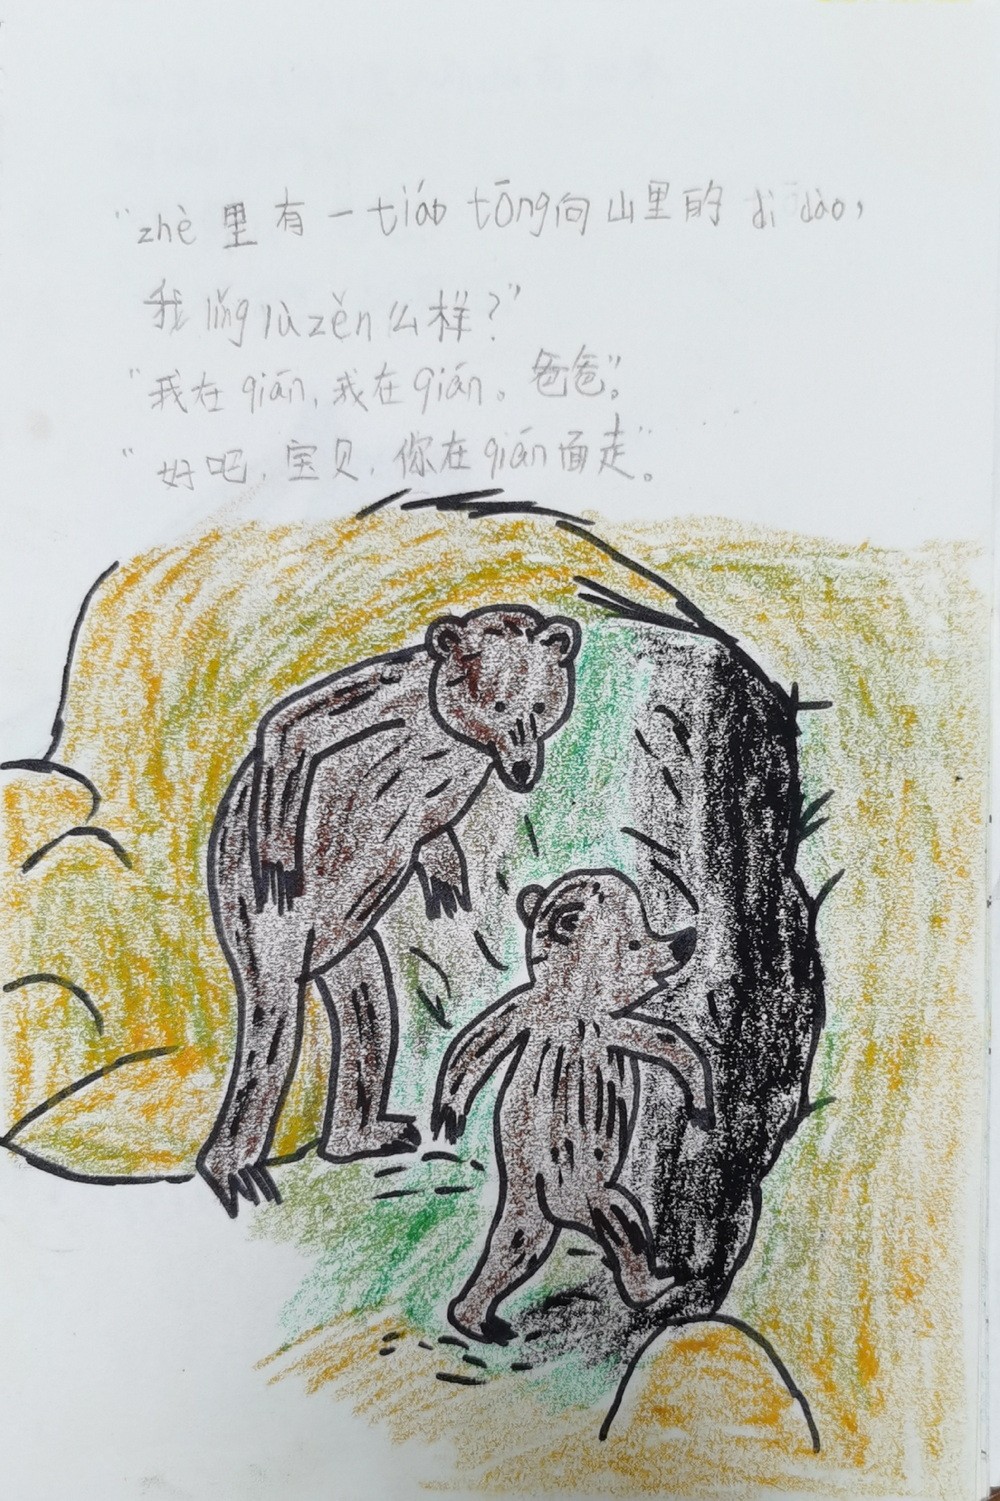 “zhè里有一tiáo tōng向山里的dì dào，
我lǐng lù zěn么样？”
“我在qián，我在qián。爸爸”。
“好吧，宝贝，你在qián面走”。